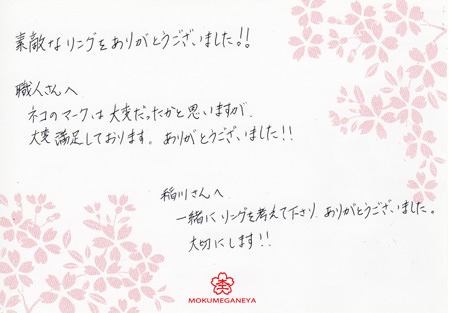 素敵なリングをありがとうございました!!
職人さんへ
ネコのマークは大変だったかと思いますが、
大変満足しております。ありがとうございました!!
稲川さんへ
一緒にリングを考えて下さり、ありがとうございました。
大切にします!!
MOKUMEGANEYA